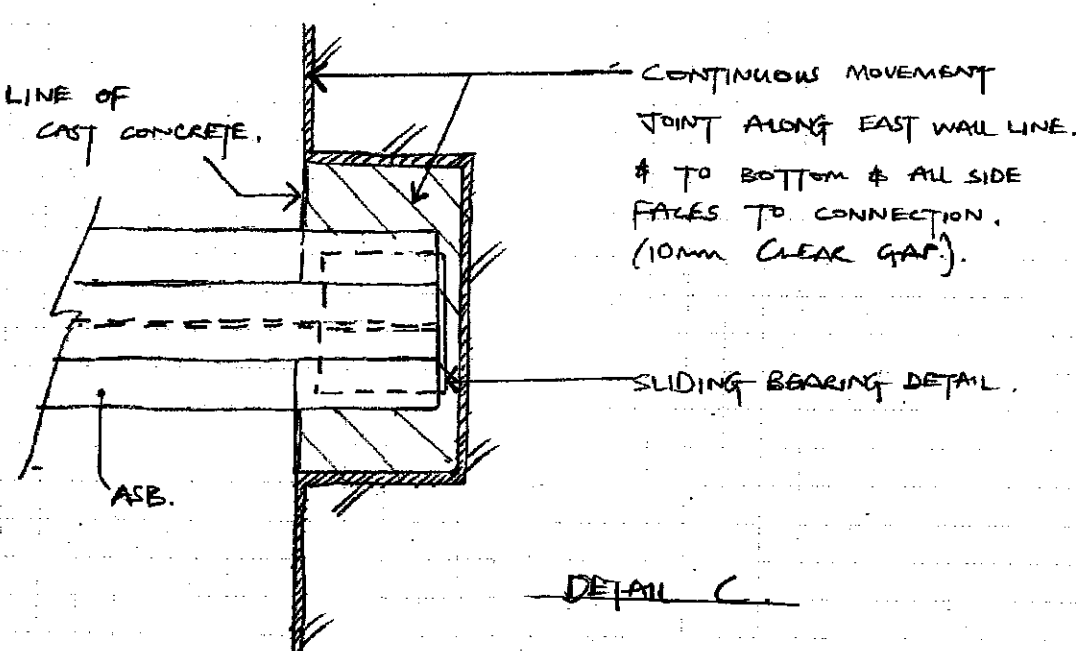 LINE OF
CAST CONCRETE.
CONTINUOUS MOVEMENT
JOINT ALONG EAST WALL LINE.
& TO BOTTOM & ALL SIDE
FACES TO CONNECTION.
(10mm CLEAR GAP.).
SLIDING BEARING DETAIL.
ASB.
DETAIL C.